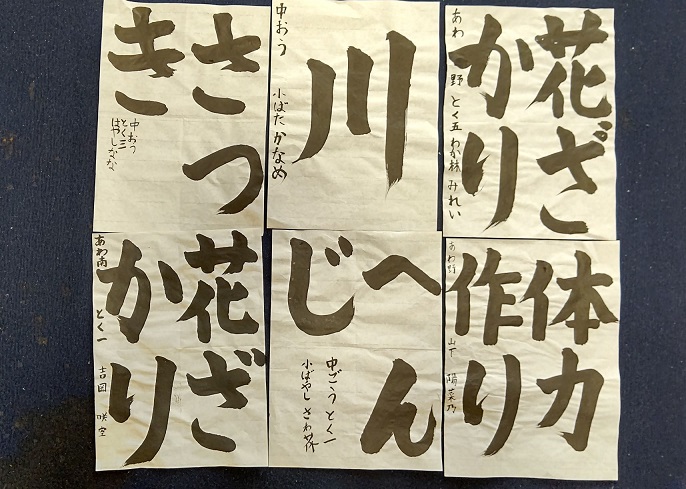 さつ
き
中おう
とく三
はやしなな
川
中おう
小ばた かなめ
花ざ
かり
あわ 野 とく五 わか林 みれい
花ざ
かり
あわ南 とく一 吉田 咲空
へん
じ
中ごう とく一
小ばやし さわ
体力
作り
あわ野 山下 陽菜乃